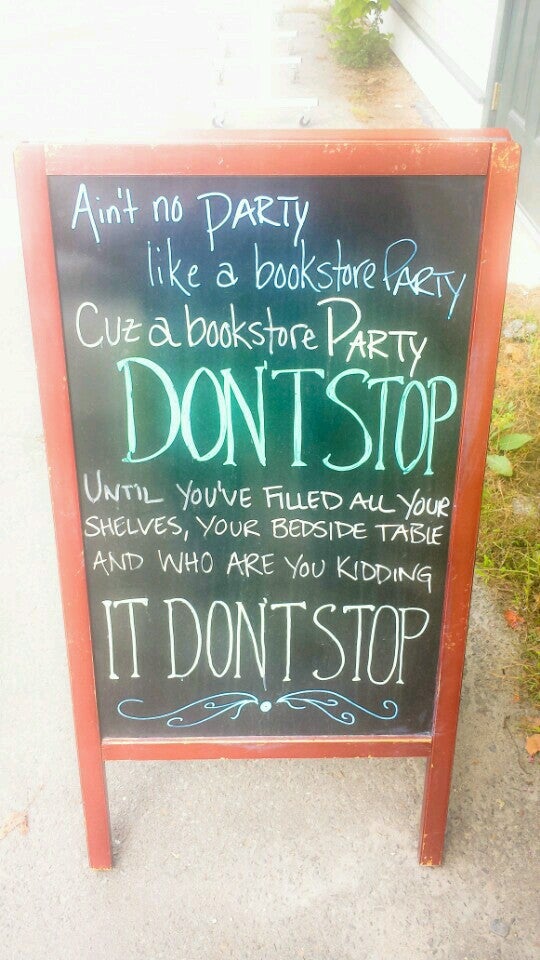 Ain't no PARTY
like a bookstore PARTY
Cuz a bookstore PARTY
DON'T STOP
UNTIL YOU'VE FILLED ALL YOUR
SHELVES, YOUR BEDSIDE TABLE
AND WHO ARE YOU KIDDING
IT DON'T STOP